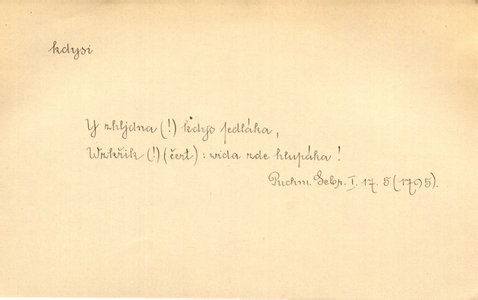 kdysi
Y zhljdna (!) kdys sedláka,
Wzkřik (!) (čert): vida zde hlupáka!
Puchm. Sebr. I. 17. 5 (1795).